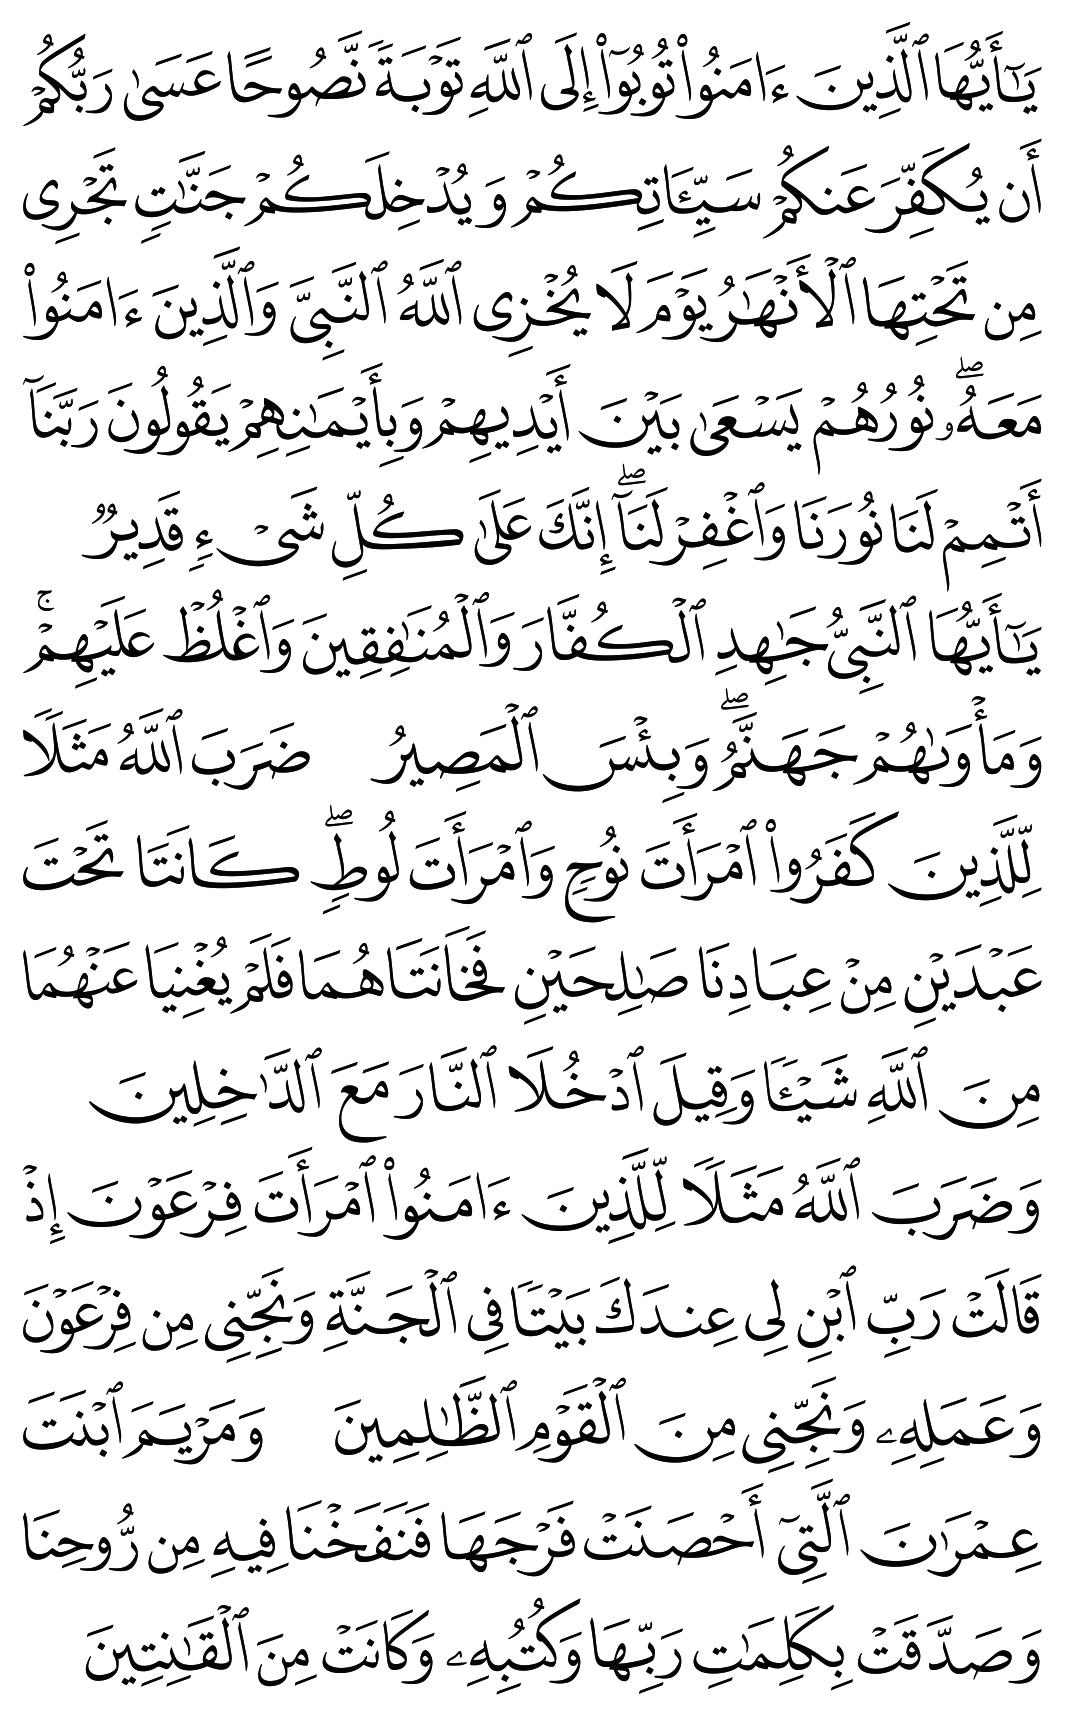 يَٰٓأَيُّهَا ٱلَّذِينَ ءَامَنُوا۟ تُوبُوٓا۟ إِلَى ٱللَّهِ تَوْبَةً نَّصُوحًا عَسَىٰ رَبُّكُمْ
أَن يُكَفِّرَ عَنكُمْ سَيِّـَٔاتِكُمْ وَيُدْخِلَكُمْ جَنَّٰتٍ تَجْرِى
مِن تَحْتِهَا ٱلْأَنْهَٰرُ يَوْمَ لَا يُخْزِى ٱللَّهُ ٱلنَّبِىَّ وَٱلَّذِينَ ءَامَنُوا۟
مَعَهُۥ ۖ نُورُهُمْ يَسْعَىٰ بَيْنَ أَيْدِيهِمْ وَبِأَيْمَٰنِهِمْ يَقُولُونَ رَبَّنَآ
أَتْمِمْ لَنَا نُورَنَا وَٱغْفِرْ لَنَآ ۖ إِنَّكَ عَلَىٰ كُلِّ شَىْءٍ قَدِيرٌ
يَٰٓأَيُّهَا ٱلنَّبِىُّ جَٰهِدِ ٱلْكُفَّارَ وَٱلْمُنَٰفِقِينَ وَٱغْلُظْ عَلَيْهِمْ ۚ
وَمَأْوَىٰهُمْ جَهَنَّمُ ۖ وَبِئْسَ ٱلْمَصِيرُ ضَرَبَ ٱللَّهُ مَثَلًا
لِّلَّذِينَ كَفَرُوا۟ ٱمْرَأَتَ نُوحٍ وَٱمْرَأَتَ لُوطٍ ۖ كَانَتَا تَحْتَ
عَبْدَيْنِ مِنْ عِبَادِنَا صَٰلِحَيْنِ فَخَانَتَاهُمَا فَلَمْ يُغْنِيَا عَنْهُمَا
مِنَ ٱللَّهِ شَيْـًٔا وَقِيلَ ٱدْخُلَا ٱلنَّارَ مَعَ ٱلدَّٰخِلِينَ
وَضَرَبَ ٱللَّهُ مَثَلًا لِّلَّذِينَ ءَامَنُوا۟ ٱمْرَأَتَ فِرْعَوْنَ إِذْ
قَالَتْ رَبِّ ٱبْنِ لِى عِندَكَ بَيْتًا فِى ٱلْجَنَّةِ وَنَجِّنِى مِن فِرْعَوْنَ
وَعَمَلِهِۦ وَنَجِّنِى مِنَ ٱلْقَوْمِ ٱلظَّٰلِمِينَ وَمَرْيَمَ ٱبْنَتَ
عِمْرَٰنَ ٱلَّتِىٓ أَحْصَنَتْ فَرْجَهَا فَنَفَخْنَا فِيهِ مِن رُّوحِنَا
وَصَدَّقَتْ بِكَلِمَٰتِ رَبِّهَا وَكُتُبِهِۦ وَكَانَتْ مِنَ ٱلْقَٰنِتِينَ